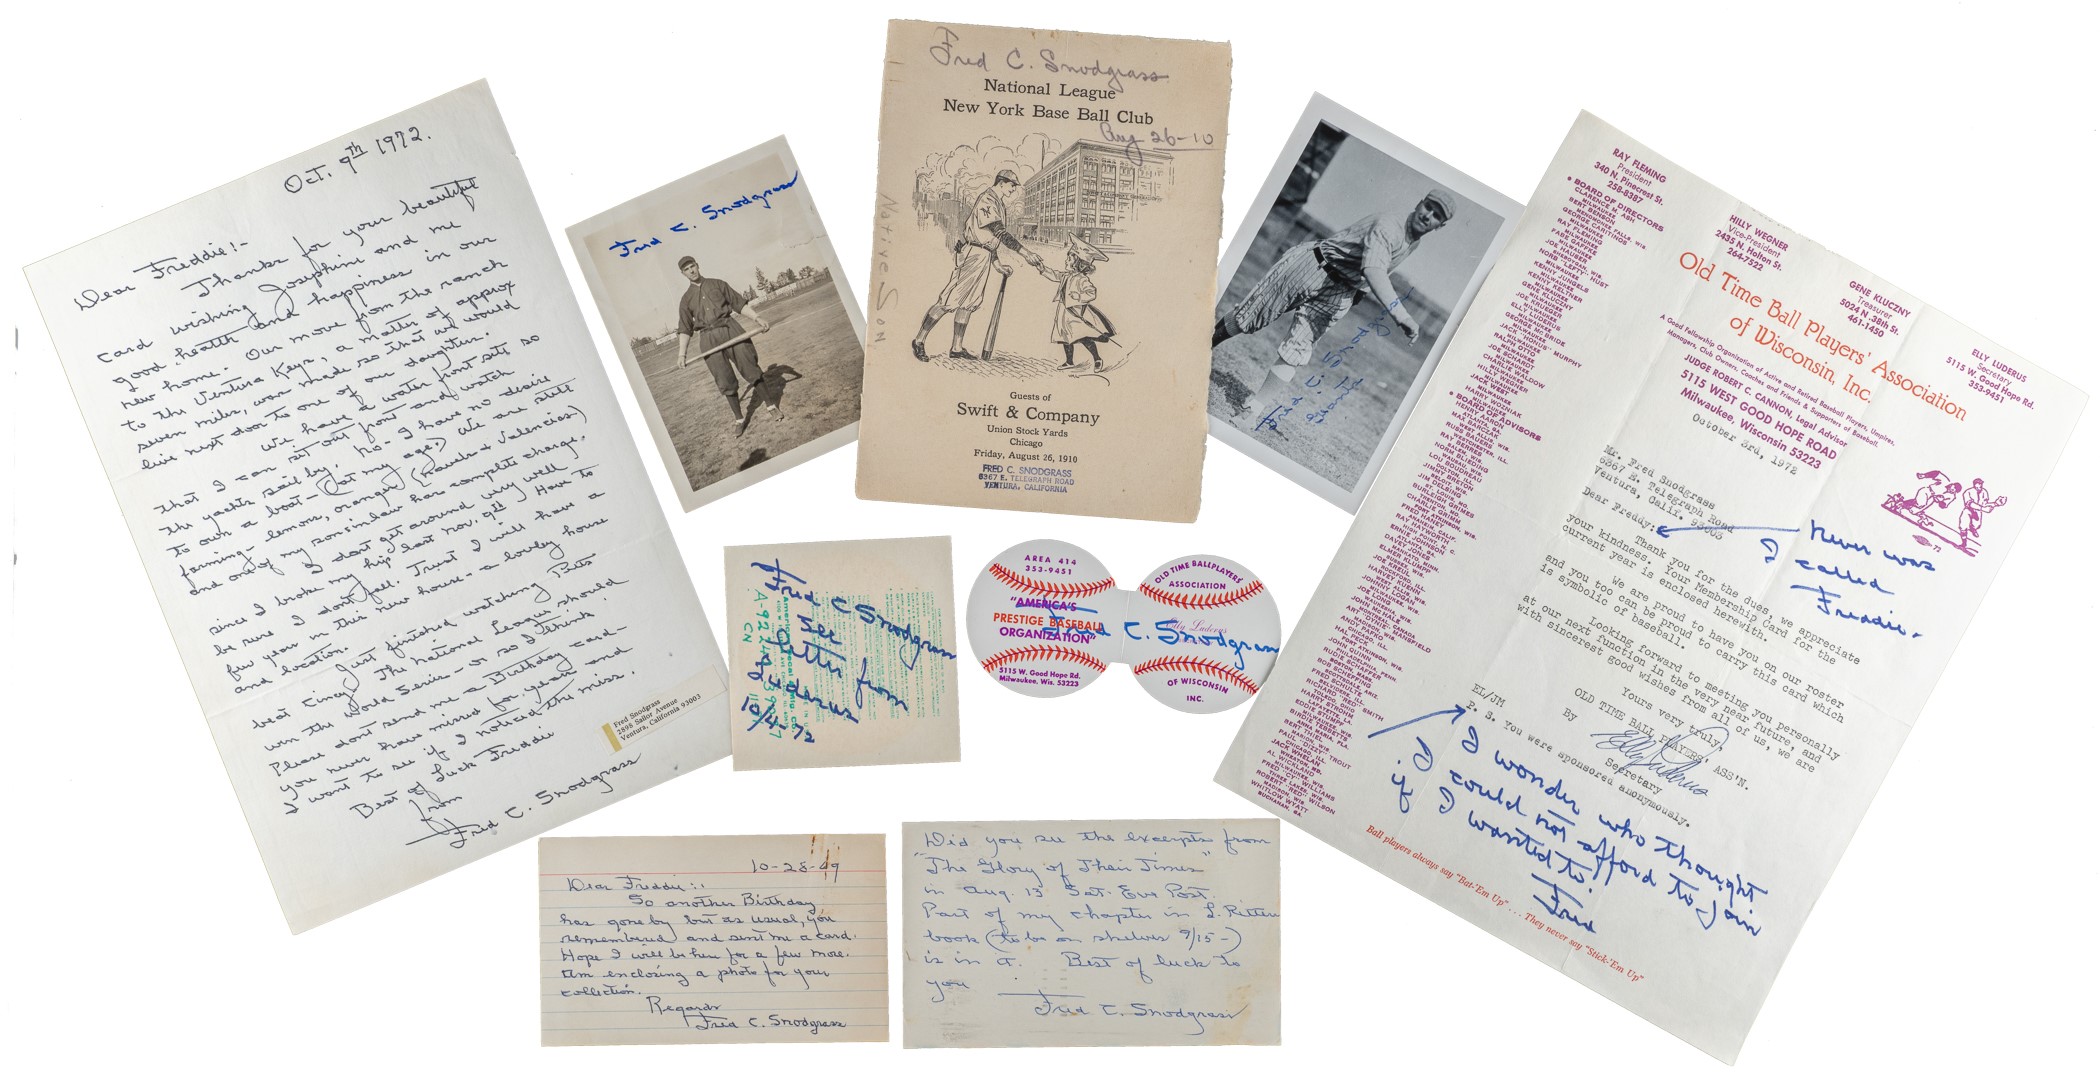 Oct. 9th 1972.
Dear Freddie:-
Thanks for your beautiful
card wishing Josephine and me
good health and happiness in our
new home. Our move from the ranch
to the Ventura Keys, a matter of approx
seven miles, was made so that we would
live next door to one of our daughters.
We have a water front site so
that I can sit out front and watch
the yachts sail by. No - I have no desire
to own a boat - (at my age?) We are still
farming - lemons, oranges (Navels & Valencias)
and one of my sons in law has complete charge.
I dont get around very well
since I broke my hip last Nov. 9th Have to
be sure I dont fall. Trust I will have a
few year in this new house - a lovely house
and location.
Just finished watching Pitts
beat Cincy. The National League should
win the World Series - or so I think.
Please dont send me a Birthday card -
you never have missed for years and
I want to see if I noticed the miss.
Best of Luck Freddie
from
Fred C. Snodgrass
Fred Snodgrass
2898 Sailor Avenue
Ventura, California 93003
Fred C. Snodgrass
Fred C. Snodgrass
National League
New York Base Ball Club
Aug 26-10
Native Son
Guests of
Swift & Company
Union Stock Yards
Chicago
Friday, August 26, 1910
FRED C. SNODGRASS
6367 E. TELEGRAPH ROAD
VENTURA, CALIFORNIA
Fred C. Snodgrass
Giants
RAY FLEMING
President
340 N. Pinecrest St.
258-8387
HILLY WEGNER
Vice-President
2435 N. Holton St.
264-7522
GENE KLUCZNY
Treasurer
5024 N. 38th St.
461-1450
ELLY LUDERUS
Secretary
5115 W. Good Hope Rd.
353-9451
Old Time Ball Players' Association
of Wisconsin, Inc.
A Good Fellowship Organization of Active and Retired Baseball Players, Umpires,
Managers, Club Owners, Coaches and Friends & Supporters of Baseball.
JUDGE ROBERT C. CANNON, Legal Advisor
5115 WEST GOOD HOPE ROAD
Milwaukee, Wisconsin 53223
• BOARD OF DIRECTORS
CLARENCE M. ASH
MILWAUKEE
BERT BENSON
RAY FLEMING
MILWAUKEE
JOE HAUSER
NORB "LEFTY" HUST
MILWAUKEE
KENNY JUNGELS
MILWAUKEE
KENNY KELTNER
MILWAUKEE
GENE KLUCZNY
MILWAUKEE
JOE KRUEGER
MILWAUKEE
ELLY LUDERUS
MILWAUKEE
GEORGE McBRIDE
MILWAUKEE
RALPH OTTO
MILWAUKEE
CHARLIE WALDOW
MILWAUKEE
HILLY WEGNER
MILWAUKEE
JACK WEST
HARRY WOZNIAK
MILWAUKEE
• BOARD OF ADVISORS
HENRY AARON
LOU BOUDREAU
BURLEIGH GRIMES
CHARLIE GRIMM
FRED HANEY
ERNIE JOHNSON
October 3rd, 1972
Mr. Fred Snodgrass
6367 E. Telegraph Road
Ventura, Calif. 93003
Dear Freddy:
Never was
I called
Freddie.
Thank you for the dues, we appreciate
your kindness. Your Membership Card for the
current year is enclosed herewith.
We are proud to have you on our roster
and you too can be proud to carry this card which
is symbolic of baseball.
Looking forward to meeting you personally
at our next function in the very near future, and
with sincerest good wishes from all of us, we are
Yours very truly,
OLD TIME BALL PLAYERS' ASS'N.
By
Elly Luderus
Secretary
EL/JM
P. S. You were sponsored anonymously.
I wonder who thought
I could not afford to join
if I wanted to.
Fred
Ball players always say "Bat-'Em Up" . . . They never say "Stick-'Em Up"
Fred C Snodgrass
see
letter from
Luderus
10/4-72
AREA 414
353-9451
"AMERICA'S
PRESTIGE BASEBALL
ORGANIZATION"
5115 W. Good Hope Rd.
Milwaukee, Wis. 53223
OLD TIME BALLPLAYERS'
ASSOCIATION
Elly Luderus
Fred C. Snodgrass
OF WISCONSIN
INC.
10-28-49
Dear Freddie:
So another Birthday
has gone by but as usual, you
remembered and sent me a card.
Hope I will be here for a few more.
Am enclosing a photo for your
collection.
Regards
Fred C. Snodgrass
Did you see the excerpts from
"The Glory of Their Times"
in Aug. 13 Sat. Eve Post.
Part of my chapter in L. Ritter
book (to be on shelves 9/15-)
is in it. Best of luck to
you
Fred C. Snodgrass